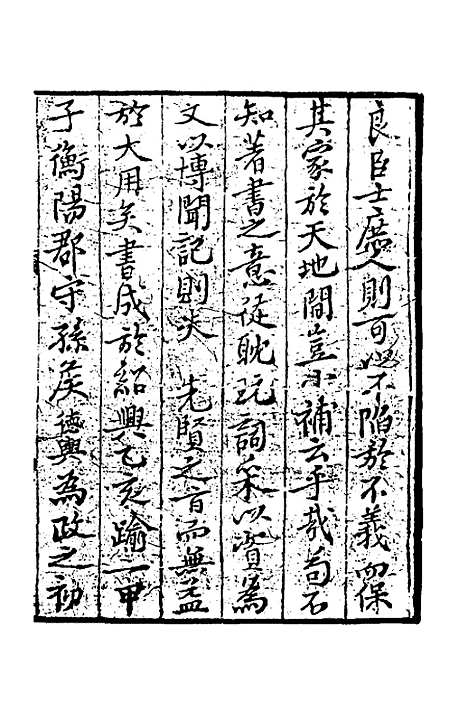 良臣士庶人則可以不陷於不義而保
其家於天地間豈小補云乎哉苟不
知著書之意從耽玩詞采以資為
文以博聞記則失先賢之旨而無益
於大用矣書成於紹興乙亥踰一甲
子衡陽郡守孫侯德輿為政之初